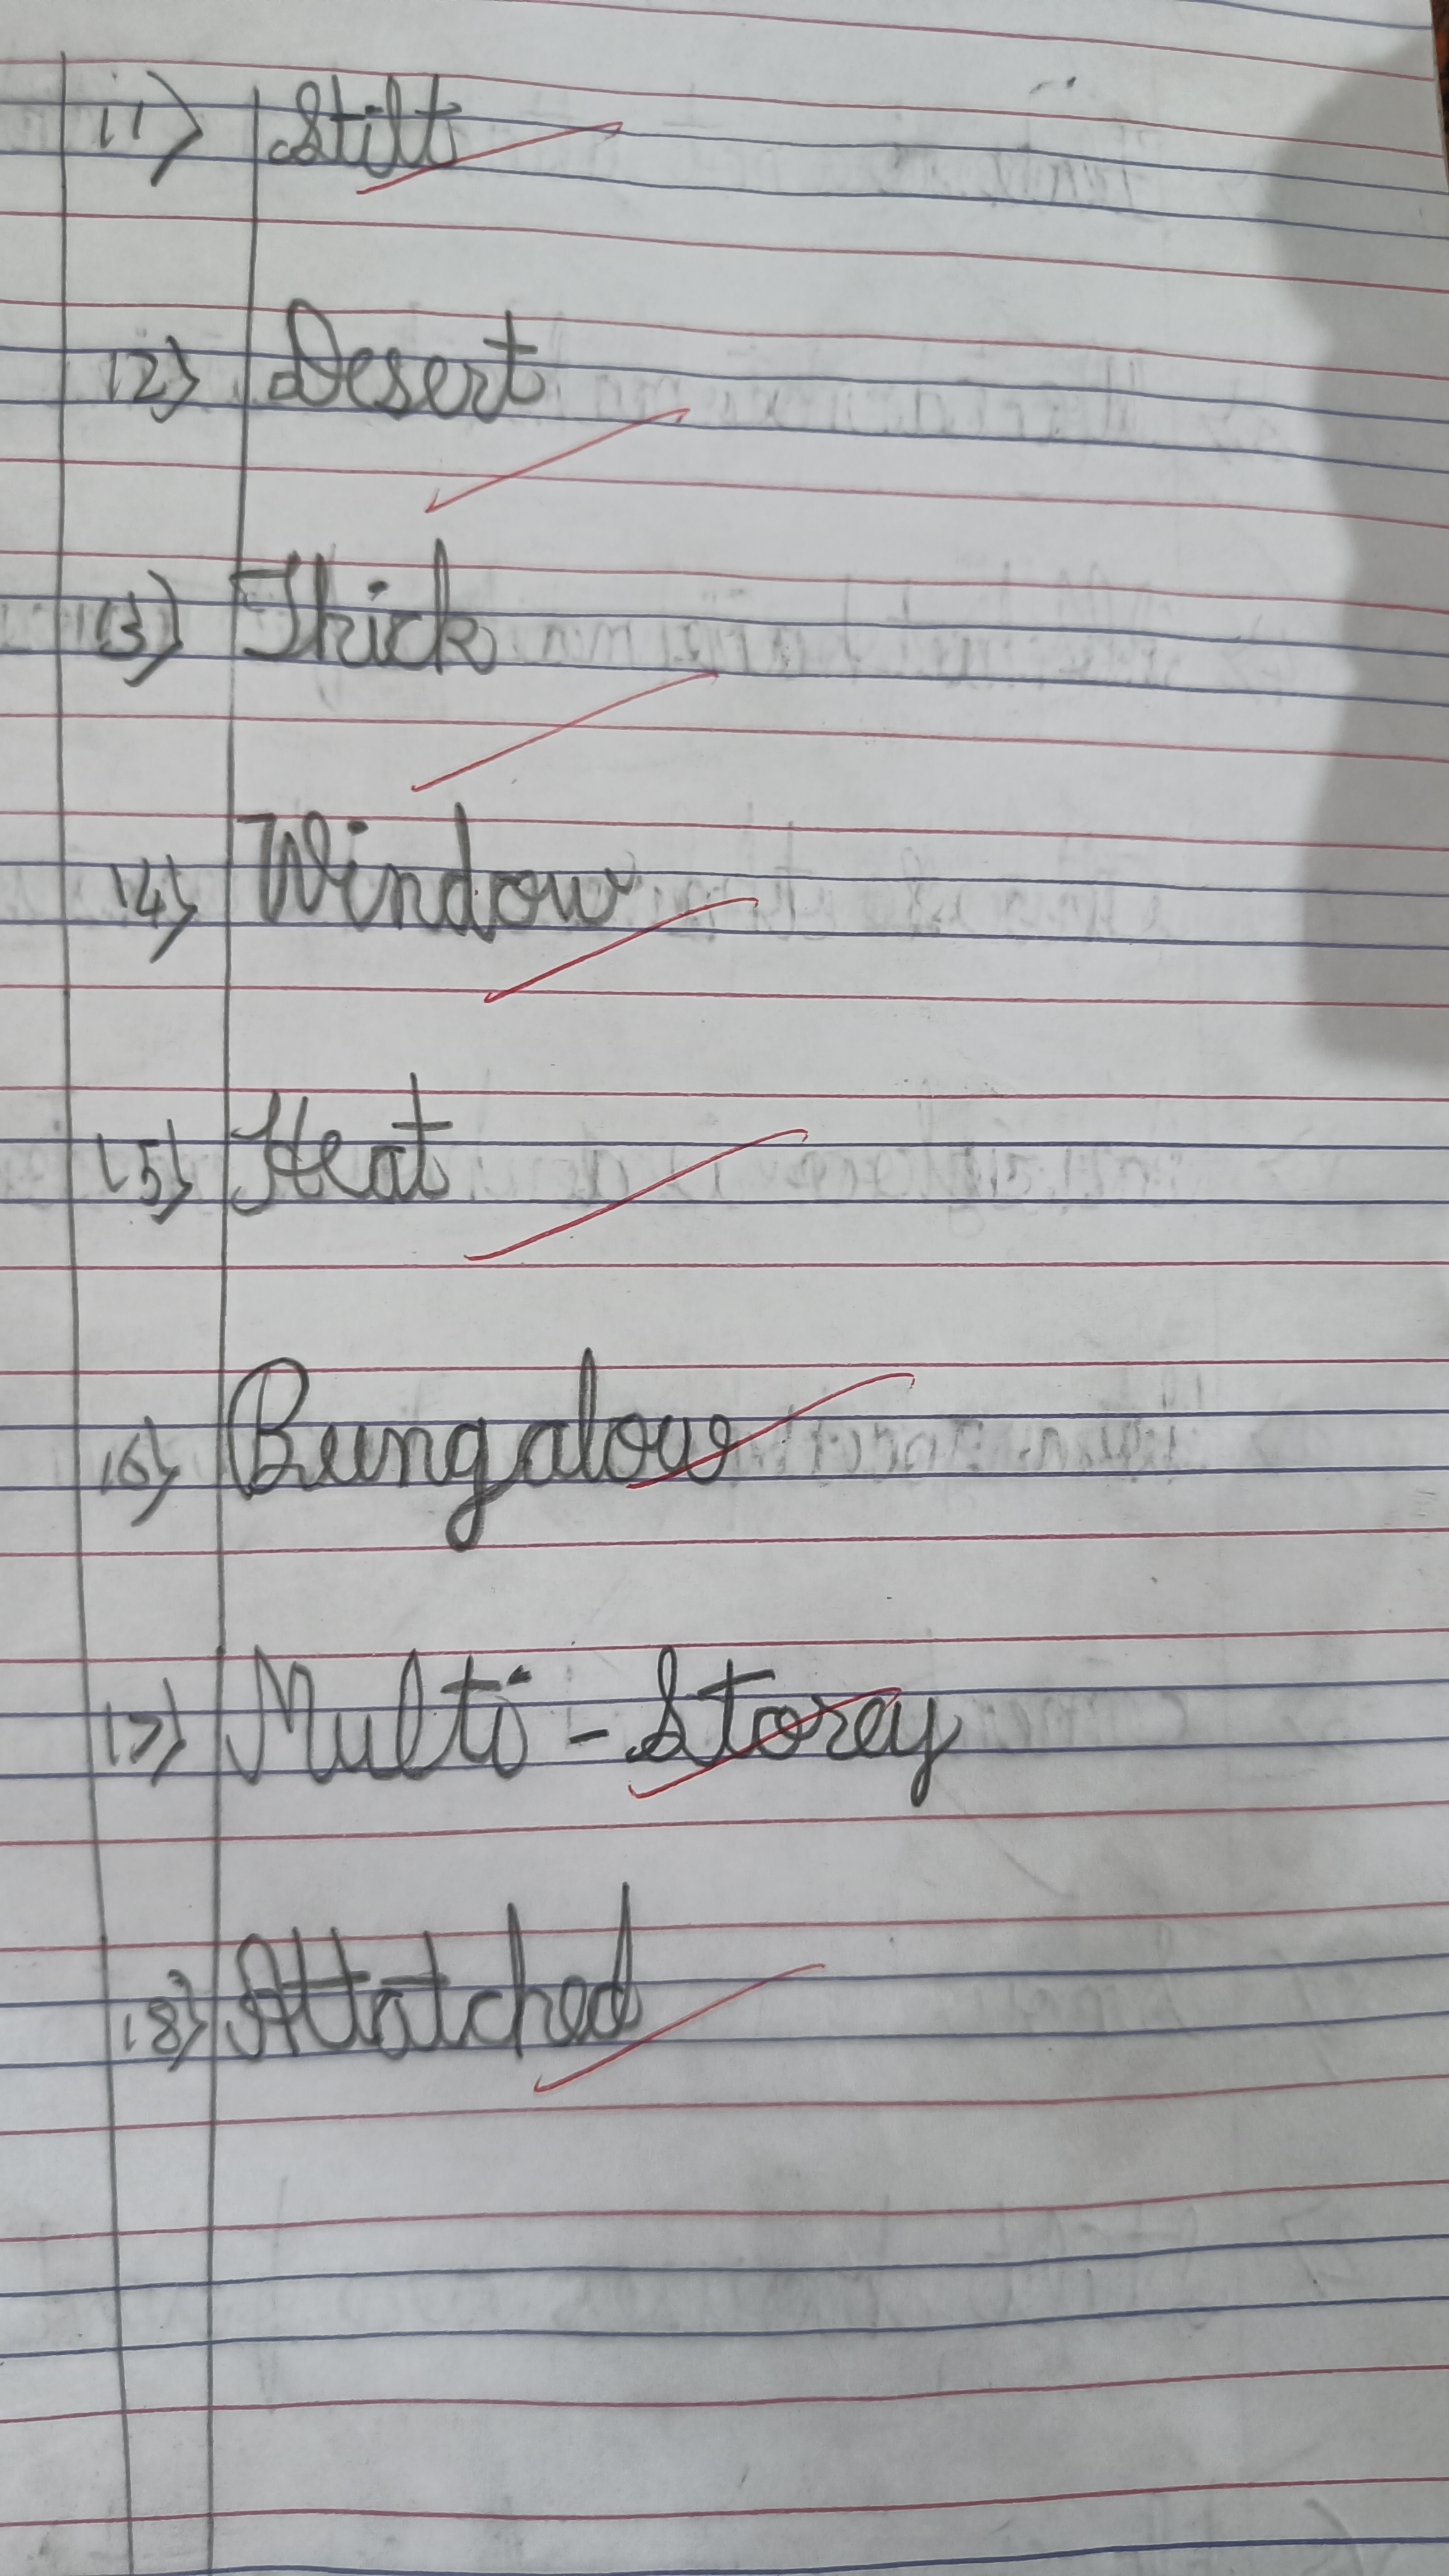 11) Stilt
12) Desert
13) Thick
14) Window
15) Heat
16) Bungalow
17) Multi - Storey
18) Attatched